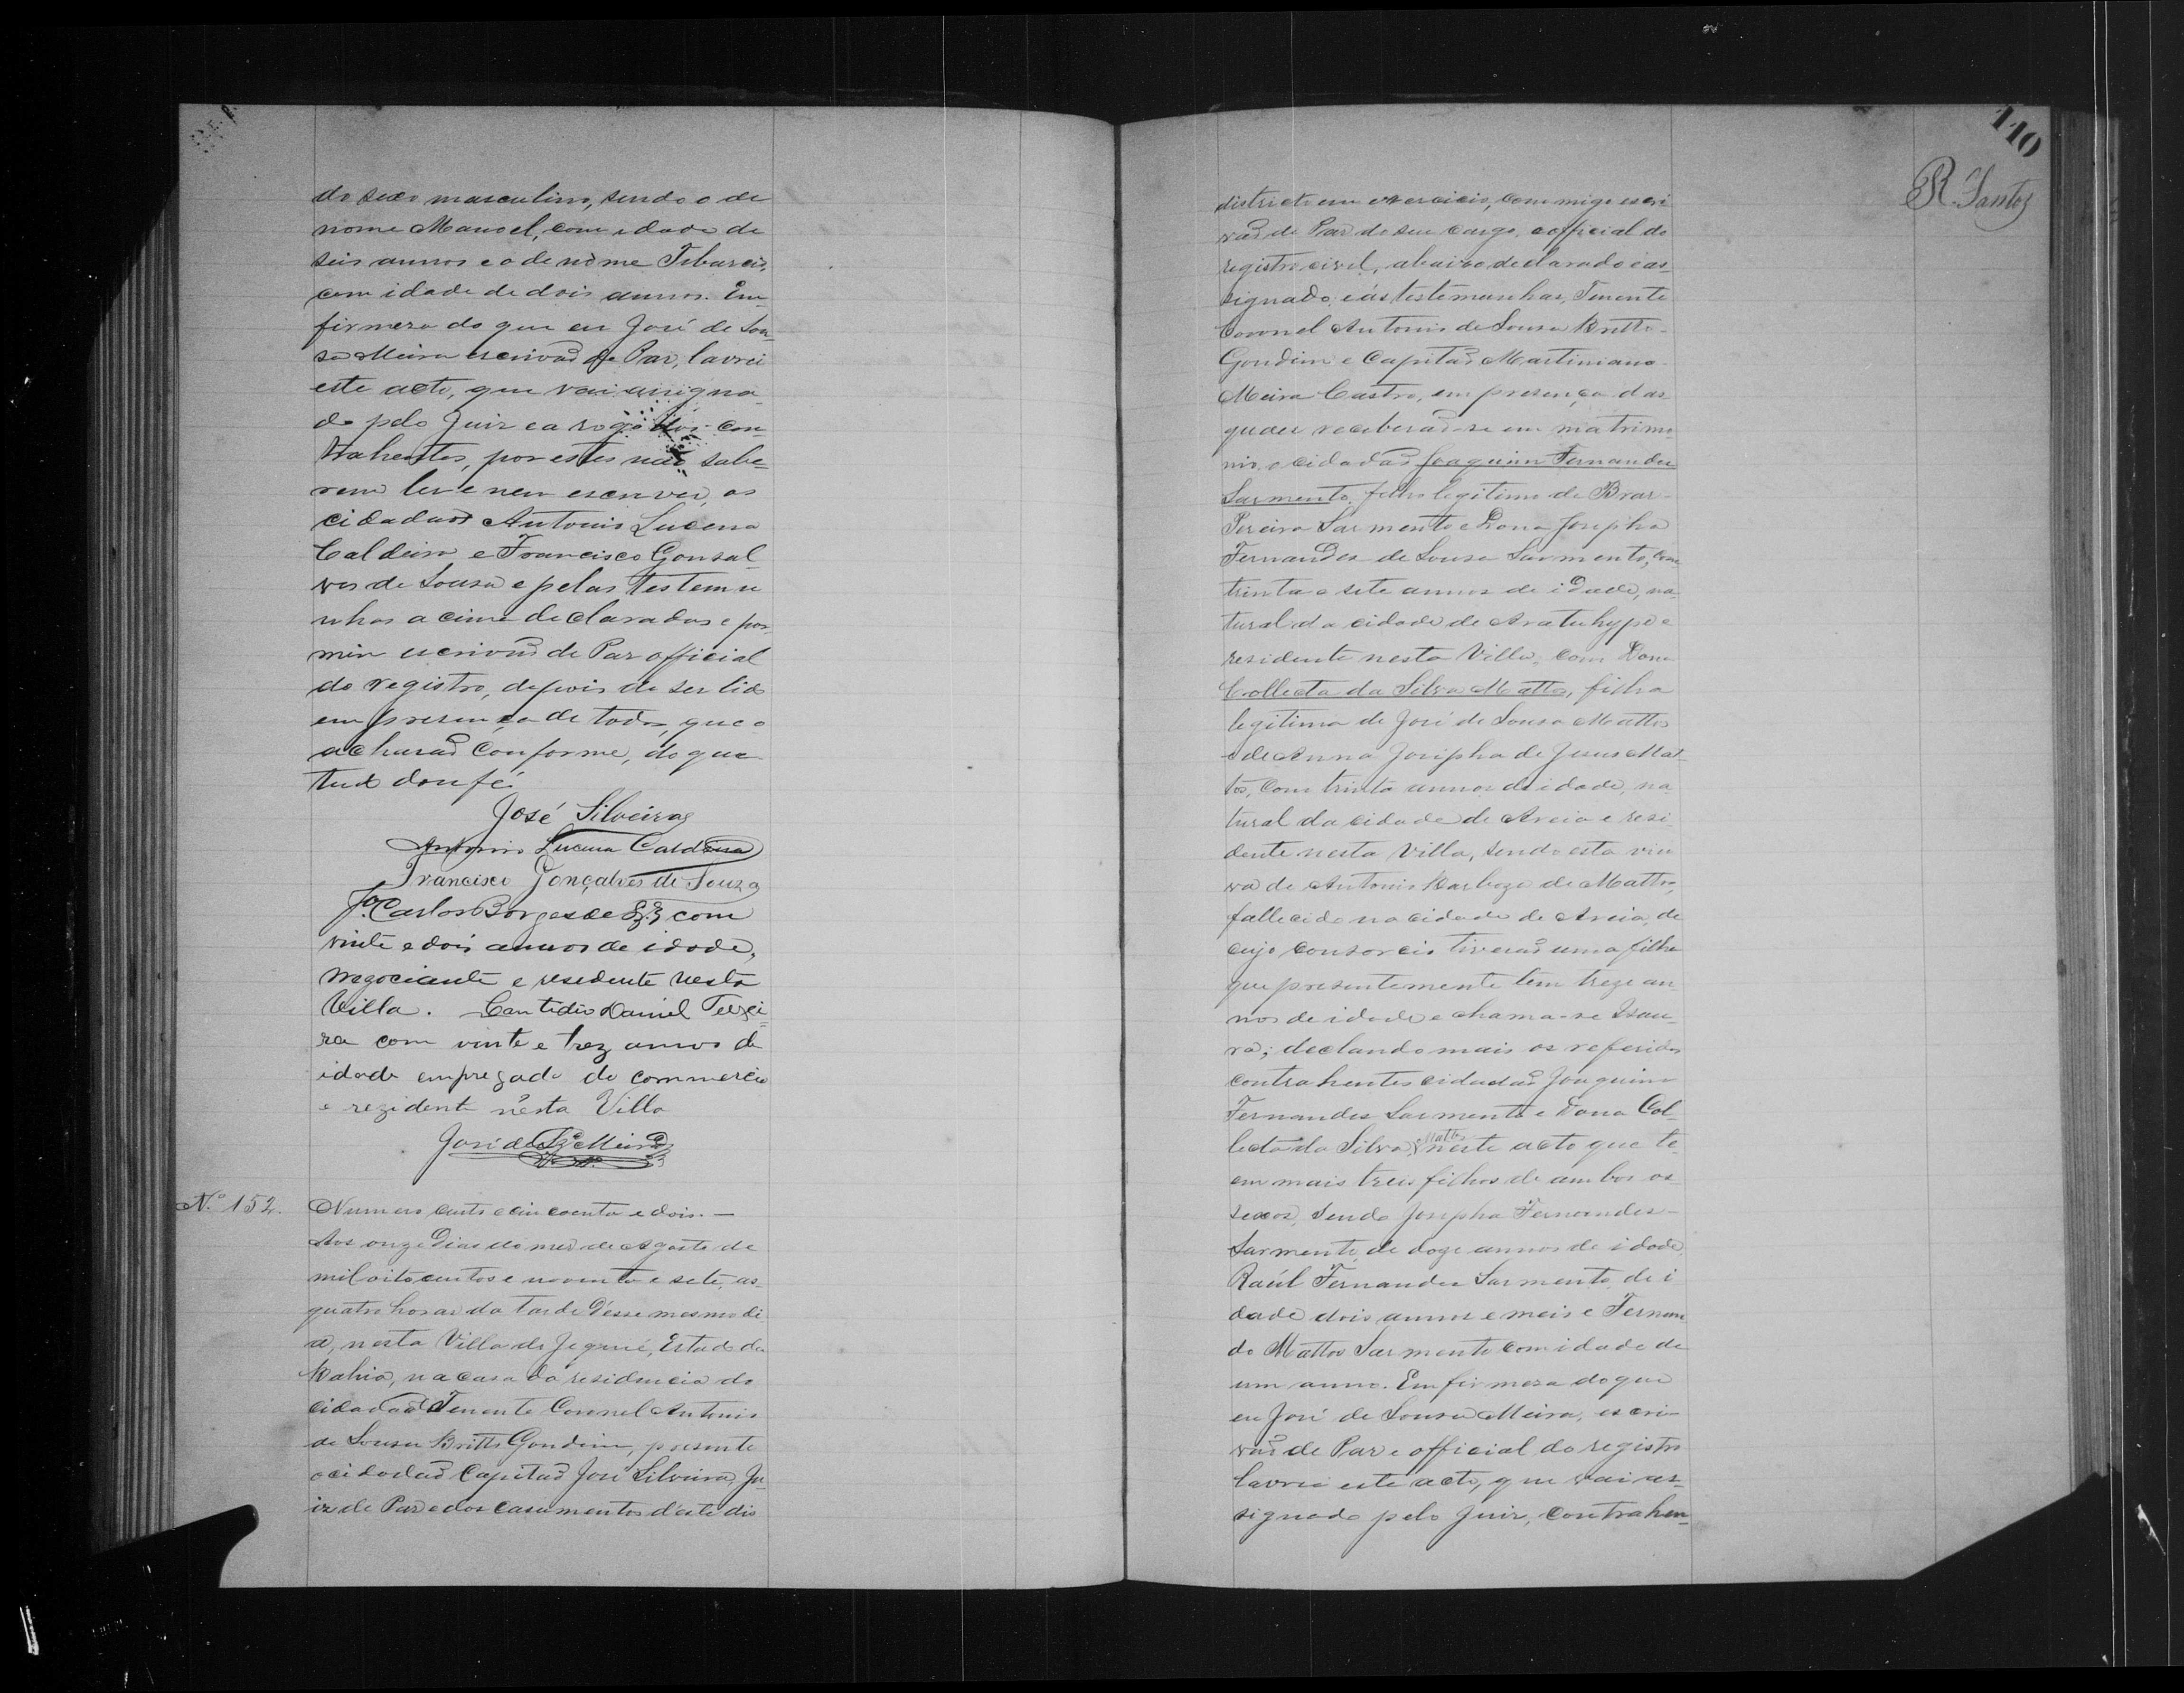 do sexo masculino, sendo o de
nome Manoel, com idade de
seis annos e o de nome Tiburcio,
com idade de dois annos. Em
firmeza do que eu José de Sou
sa Meira escrivaõ de Paz, lavrei
este acto, que vai assigna
do pelo Juiz e a rogo dos con
trahentes, por estes naõ sabe
rem ler e nem escrever, os
cidadaõs Antonio Lucena
Caldeira e Francisco Gonsal
ves de Sousa e pelas testemu
nhas acima declaradas e por
mim escrivaõ de Paz official
do registro, depois de ser lido
em presença de todos, que o
acharaõ conforme, do que
tudo dou fé.
José Silveira
Antonio Lucena Caldeira
Francisco Gonçalves de Souza
Carlos Borges de com
vinte e dois annos de idade,
negociante e resedente nesta
Villa. Cantidio Daniel Teixei
ra com vinte e trez annos de
idade empregado do commercio
e rezidente nésta Villa
José de Sza. Meira
N.º 152.
Numero cento e cincoenta e dois. —
Aos onze dias do mez de Agosto de
mil oitocentos e noventa e sete, as
quatro horas da tarde d'esse mesmo di
a, nesta Villa de Jequié, Estado da
Bahia, na casa da residencia do
cidadaõ Tenente Coronel Antonio
de Sousa Britto Gondim, presente
o cidadaõ Capitaõ José Silveira, Ju
iz de Paz e dos casamentos d'este dis
110
R. Santos
districto em exercicio, commigo escri
vaõ de Paz do seu cargo, e official do
registro civil, abaixo declarado e as
signado, e ás testemunhas, Tenente
Coronel Antonio de Sousa Britto
Gondim e Capitaõ Martiniano
Meira Castro, em presença das
quaes receberaõ-se em matrimo
nio, o cidadaõ Joaquim Fernandes
Sarmento, filho legitimo de Braz
Pereira Sarmento e Dona Josepha
Fernandes de Sousa Sarmento, com
trinta e sete annos de idade, na
tural da cidade de Aratuhype e
residente nesta Villa, com Dona
Collecta da Silva Mattos, filha
legitima de José de Sousa Mattos
e de Anna Josepha de Jesus Mat
tos, com trinta annos de idade, na
tural da cidade de Areia e resi
dente nesta Villa, sendo esta viu
va de Antonio Barboza de Mattos,
fallecido na cidade de Areia, de
cujo consorcio tiveraõ uma filha
que presentemente tem treze an
nos de idade e chama-se Izau
ra; declando mais os referidos
contrahentes cidadaõ Joaquim
Fernandes Sarmento e Dona Col
lecta da Silva Mattos neste acto que te
em mais treis filhos de ambos os
sexos, sendo Josepha Fernandes
Sarmento, de doze annos de idade,
Raúl Fernandes Sarmento, de i
dade dois annos e meio e Fernan
do Mattos Sarmento com idade de
um anno. Em firmeza do que
eu José de Sousa Meira, escri
vaõ de Paz e official do registro
lavrei este acto, que vai as
signado pelo Juiz, contrahen